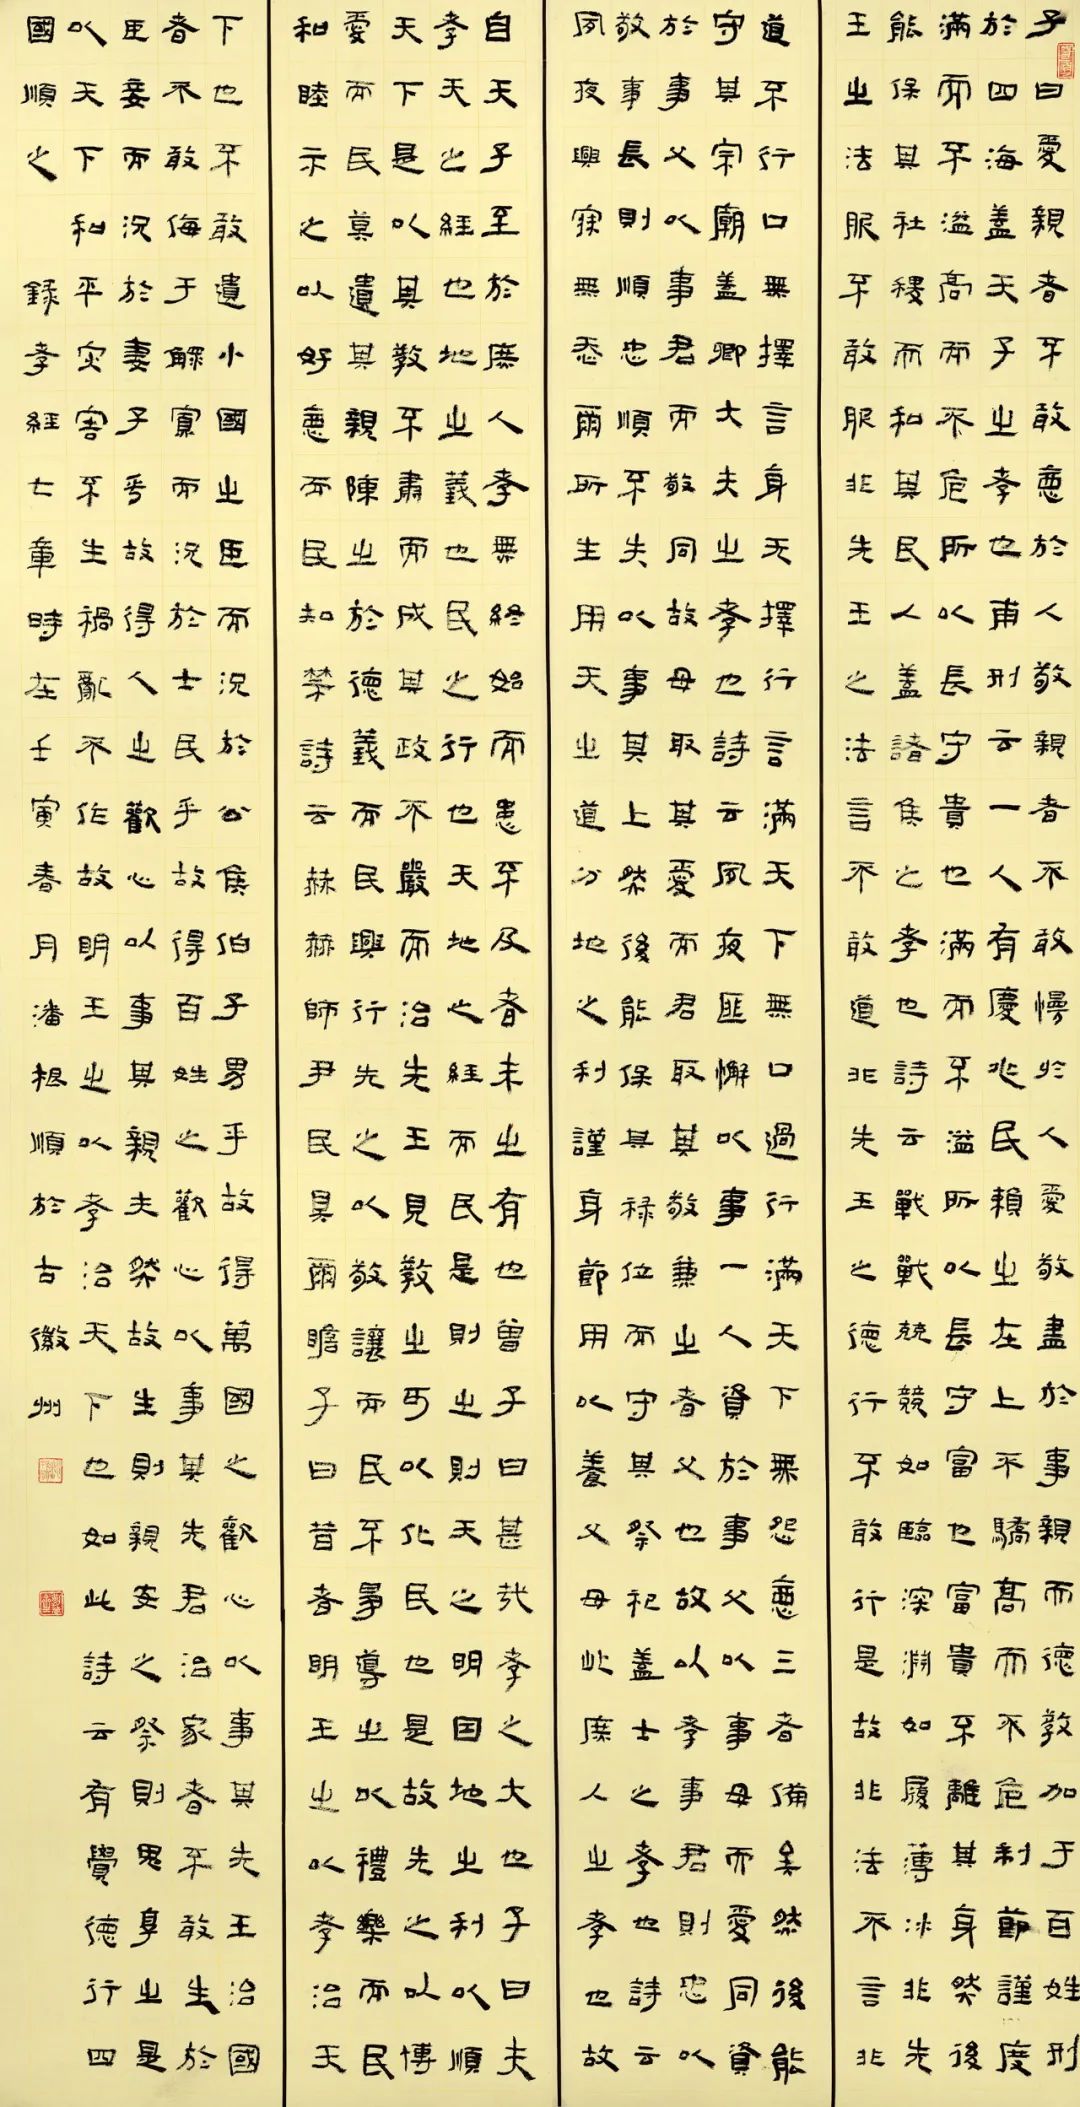 子曰愛親者不敢惡於人敬親者不敢慢於人愛敬盡於事親而德教加于百姓刑
於四海蓋天子之孝也甫刑云一人有慶兆民賴之在上不驕高而不危制節謹度
滿而不溢高而不危所以長守貴也滿而不溢所以長守富也富貴不離其身然後
能保其社稷而和其民人蓋諸侯之孝也詩云戰戰兢兢如臨深淵如履薄冰非先
王之法服不敢服非先王之法言不敢道非先王之德行不敢行是故非法不言非
道不行口無擇言身无擇行言滿天下無口過行滿天下無怨惡三者備矣然後能
守其宗廟蓋卿大夫之孝也詩云夙夜匪懈以事一人資於事父以事母而愛同資
於事父以事君而敬同故母取其愛而君取其敬兼之者父也故以孝事君則忠以
敬事長則順忠順不失以事其上然後能保其禄位而守其祭祀蓋士之孝也詩云
夙夜興寐無忝爾所生用天之道分地之利謹身節用以養父母此庶人之孝也故
自天子至於庶人孝無終始而患不及者未之有也曾子曰甚哉孝之大也子曰夫
孝天之經也地之義也民之行也天地之經而民是則之則天之明因地之利以順
天下是以其教不肅而成其政不嚴而治先王見教之可以化民也是故先之以博
愛而民莫遺其親陳之於德義而民興行先之以敬讓而民不爭導之以禮樂而民
和睦示之以好惡而民知禁詩云赫赫師尹民具爾瞻子曰昔者明王之以孝治天
下也不敢遺小國之臣而況於公侯伯子男乎故得萬國之歡心以事其先王治國
者不敢侮于鰥寡而況於士民乎故得百姓之歡心以事其先君治家者不敢生於
臣妾而況於妻子乎故得人之歡心以事其親夫然故生則親安之祭則鬼享之是
以天下和平災害不生禍亂不作故明王之以孝治天下也如此詩云有覺德行四
國順之 錄孝經七章時在壬寅春月潘根順於古徽州